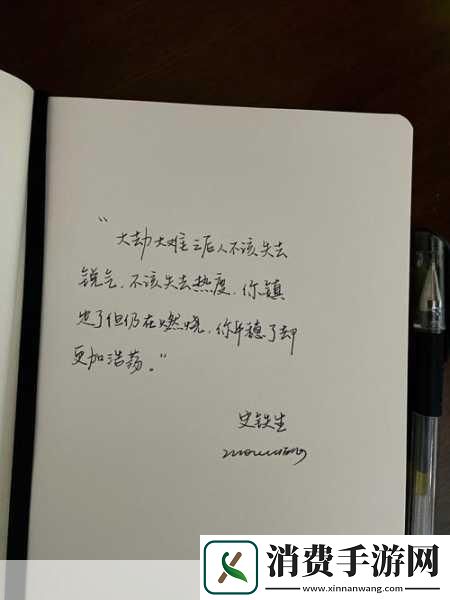 “大劫大难之后人不该失去
锐气，不该失去热度，你镇
定了但仍在燃烧，你平稳了却
更加浩荡。”
史铁生
消费手游网
www.xinnanwang.com